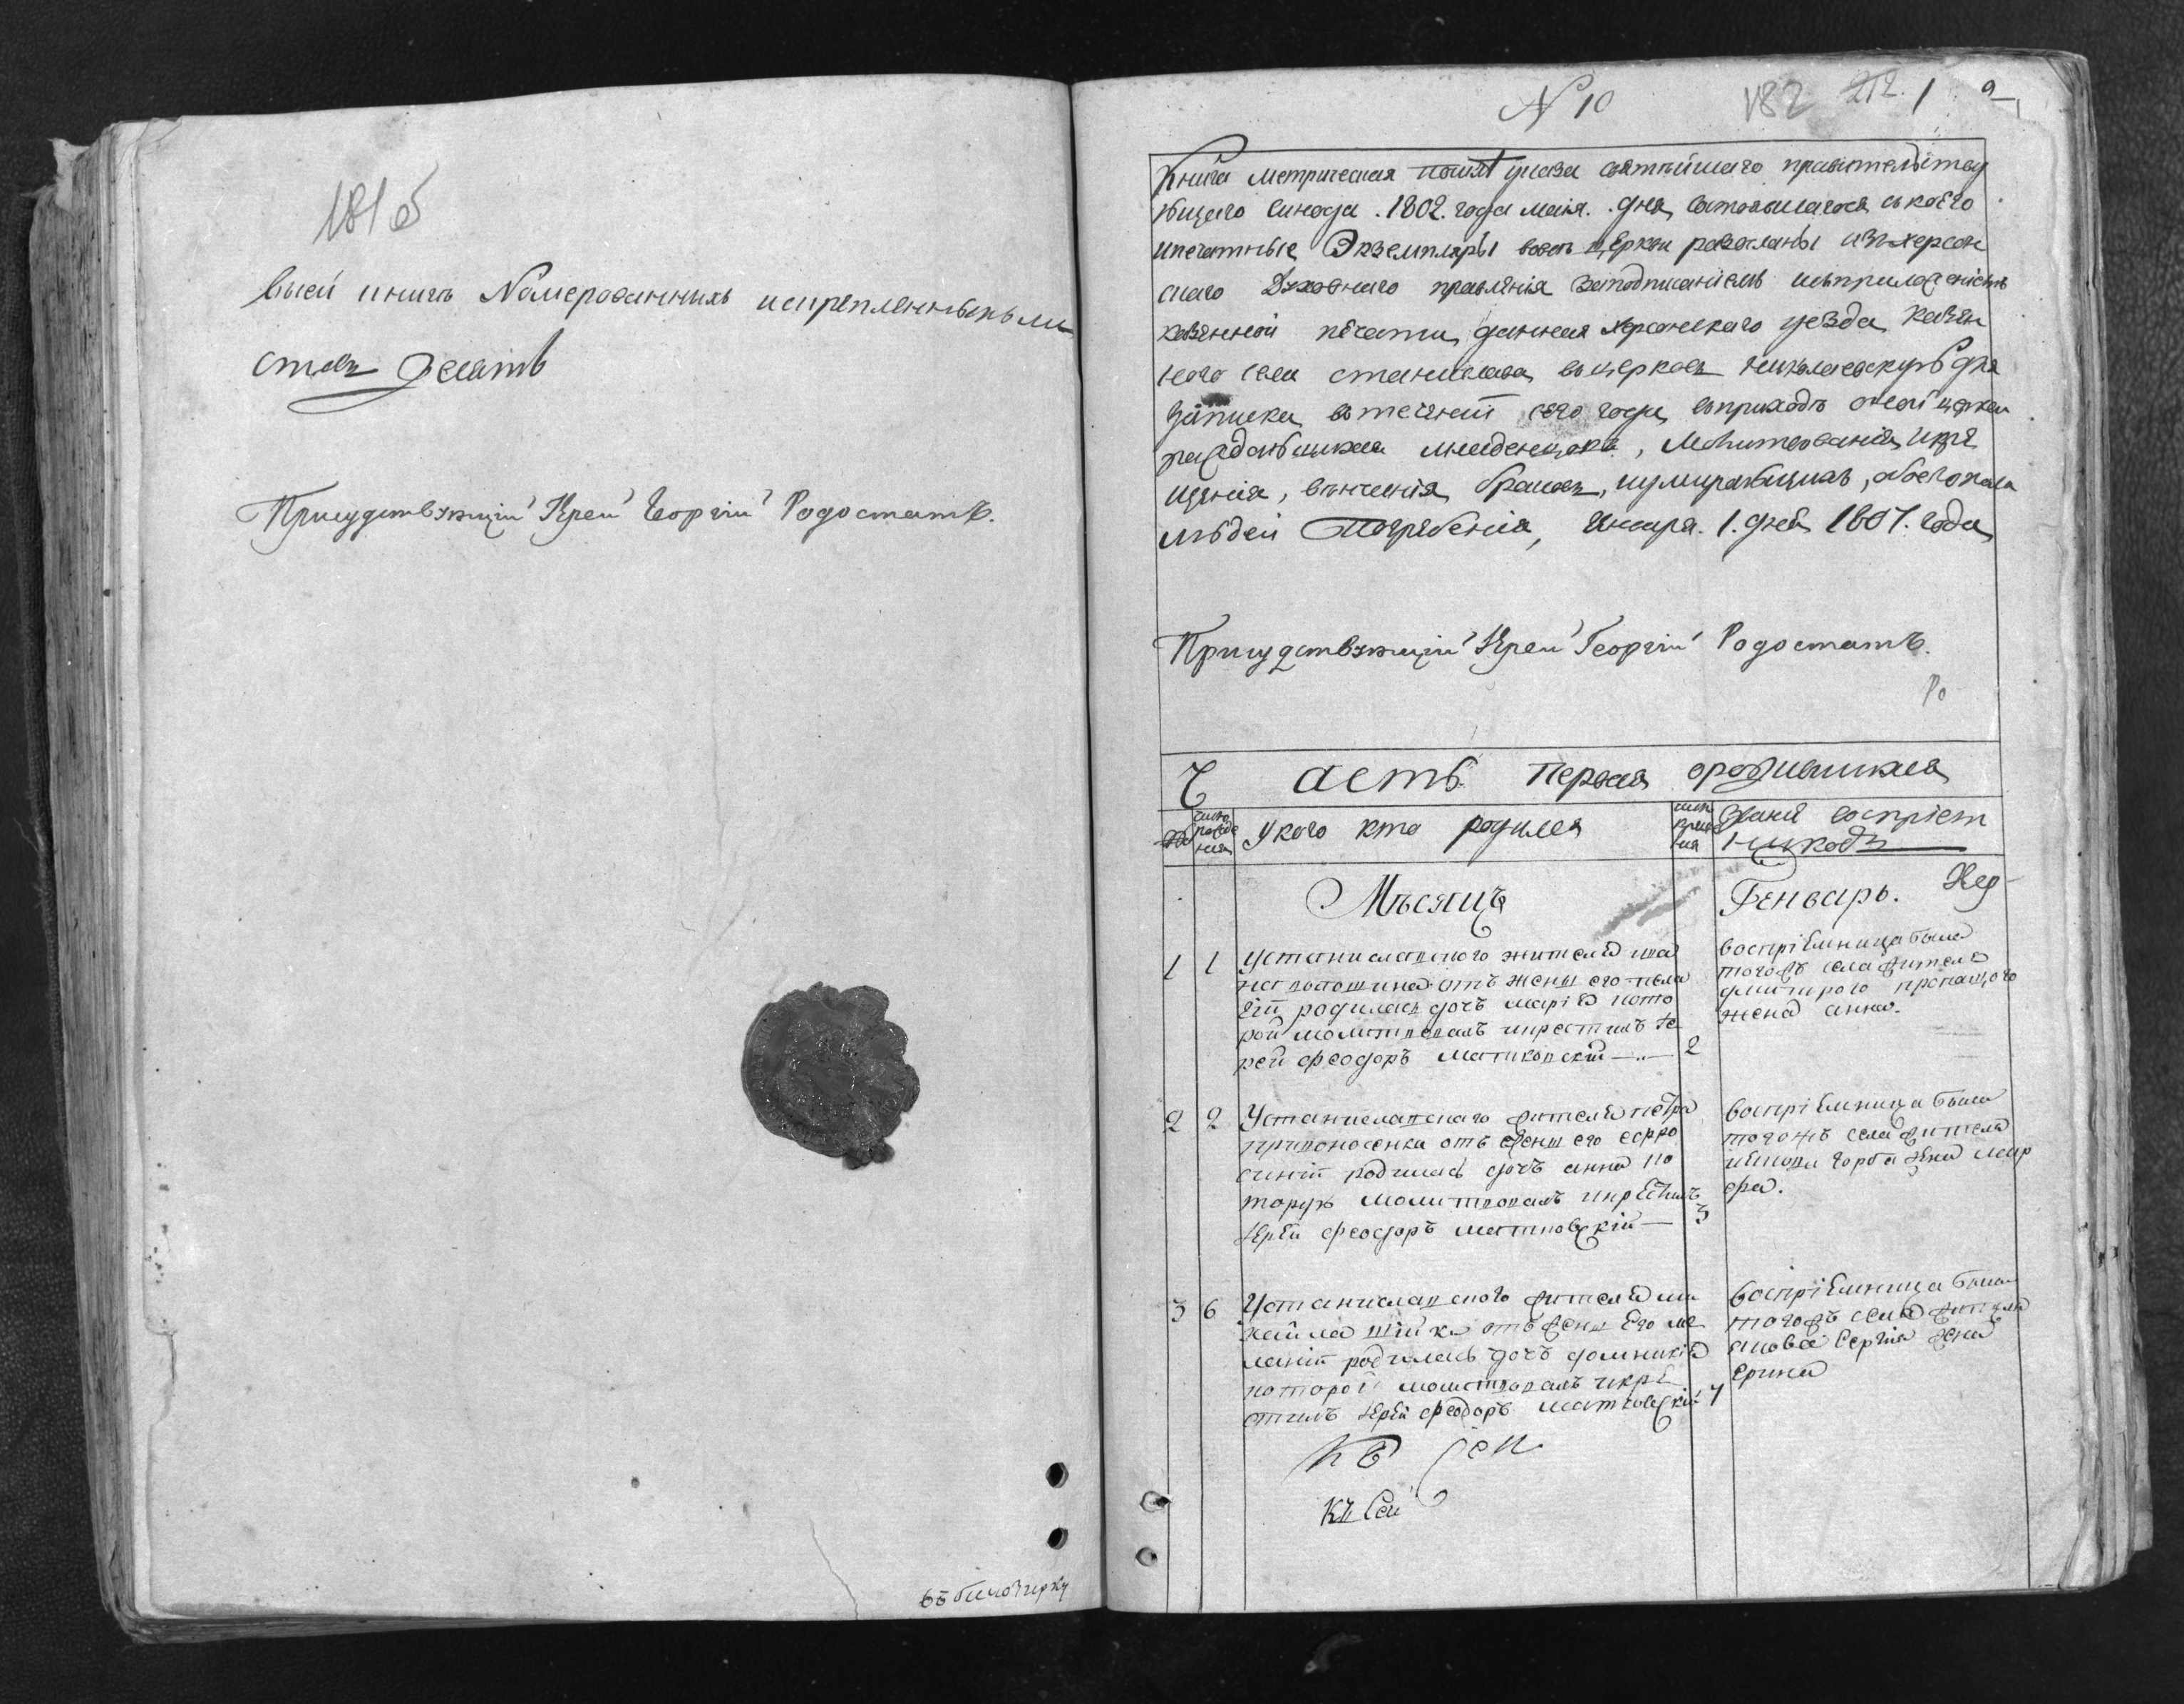 181 об
Въсей книгѣ Номерованнихъ искрепленныхъ ли
стовъ Десять
Присудствующій Іерей Георгій Родостатъ.
въ билозерку
N 10
182 212. 1
Книга Метрическая указа святѣйшаго правителству
ющаго Синода. 1802. года маія. дня состоявшагося съ коего
ипечатные Экземпляры вовсѣ церкви разосланы изъ херсон
скаго Духовнаго правленія заподписаніемъ исъприложеніемъ
казенной печати, данная херсонскаго уезда казен
ного села станислава въ церковь николаевскую для
записки втеченіи сего года въприходѣ оной церкви
раждающихся младенцовъ, Молитвованія, икре
щенія, венчанія браковъ, иумирающихъ, обоегопола
людей Погребенія, Января. 1. дня 1807. года
Присудствующій Іерей Георгій Родостатъ.
Ро
Часть Первая ородившихся
число рожде нія
У кого кто родился
число креще нія
Званіе воспріем
никовъ
Мѣсяцъ
Генварь.
1 1 Устаниславского жителя
отъ жены его пела
гіи родилась дочь марія кото
рой молитвовалъ икрестилъ іе
рей феодоръ матковскій 2
воспріемница была
тогожъ села жителя
дмитрого пропащого
жена анна.
2 2 Устаниславского жителя петра
отъ жены его софро
синіи родилась дочь анна ко
торую молитвовалъ икрестилъ
іерей феодоръ матковскій 3
воспріемница была
тогожъ села жителя
горба жена мар
фа.
3 6 Устаниславского жителя ми
хайла шійка отъ жены его ме
ланіи родилась дочь домникія
которой молитвовалъ икре
стилъ іерей феодоръ матковскій 7
воспріемница была
тогожъ села жителя
Сергія жена
ерина
къ сей
къ Сей